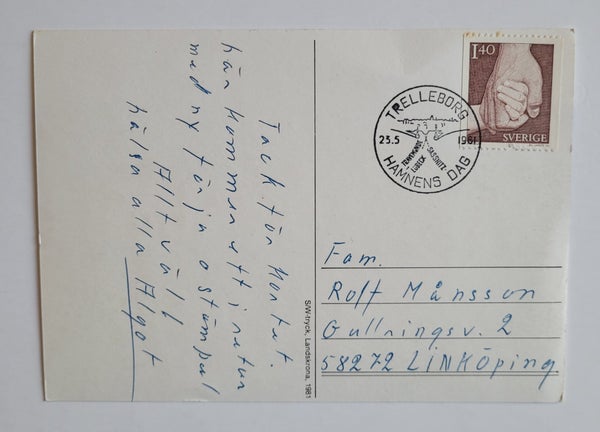 Tack för kortet.
här kommer ett i retur
med ny färja o stämpel
Allt väl!
hälsa alla Algot
1.40
SVERIGE
TRELLEBORG
23.5 1981
TRAVEMÜNDE
LÜBECK
SASSNITZ
HAMNENS DAG
Fam.
Rolf Månsson
Gullringsv. 2
58272 LINKÖPING
S/W-tryck, Landskrona, 1981